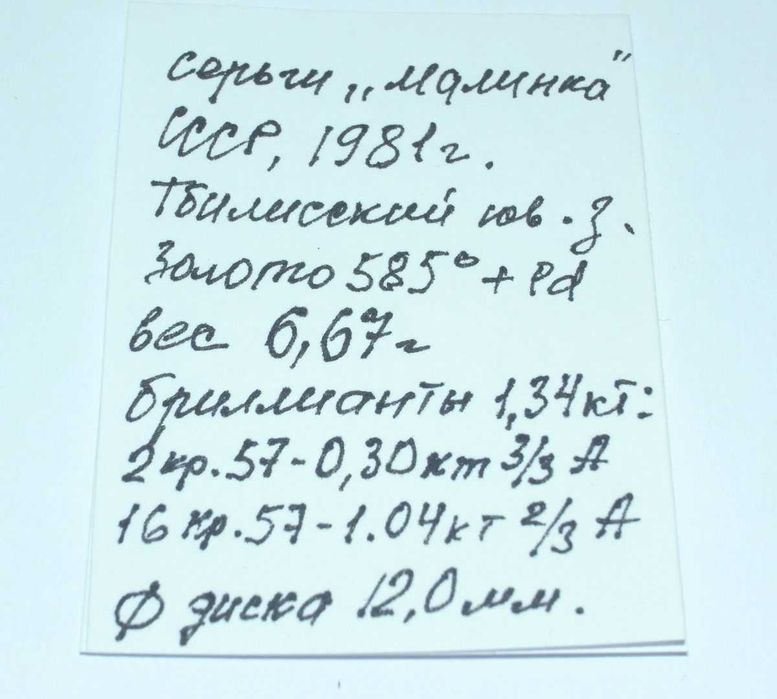 серьги „Малинка"
СССР, 1981г.
Тбилисский юв. з.
Золото 585° + Pd
вес 6,67г
бриллианты 1,34кт:
2кр.57-0,30кт 3/3 А
16кр.57-1.04кт 2/3 А
Ф диска 12,0мм.